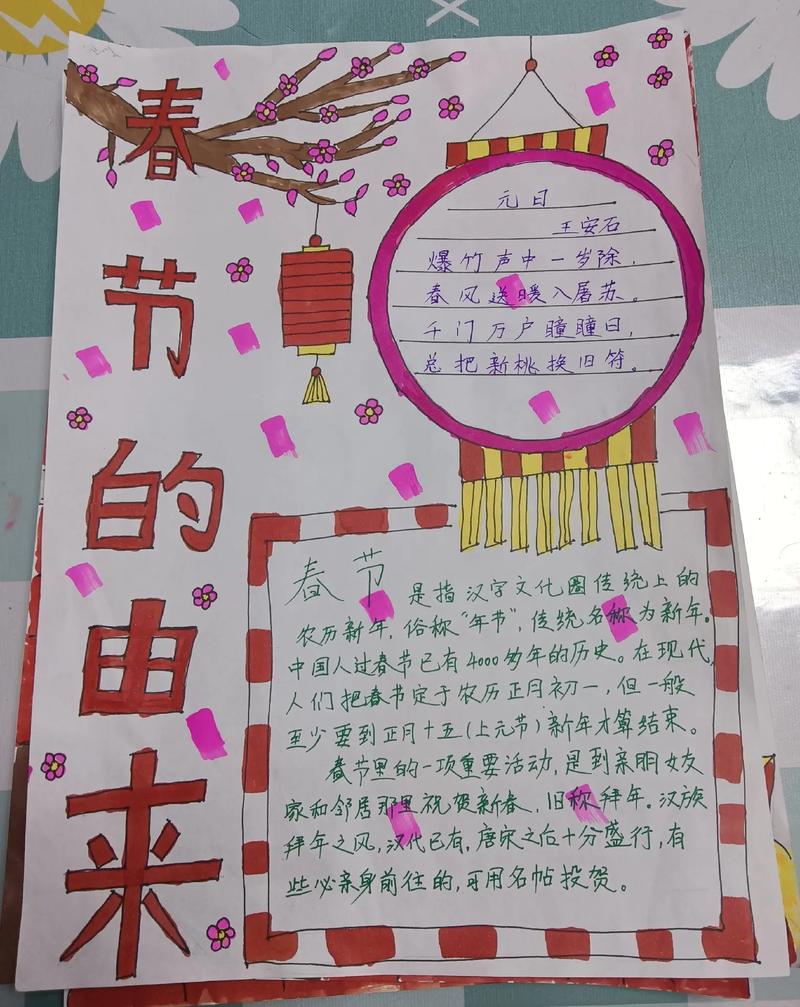 春节的由来
元日
王安石
爆竹声中一岁除,
春风送暖入屠苏。
千门万户瞳瞳日,
总把新桃换旧符。
春节 是指汉字文化圈传统上的
农历新年,俗称"年节",传统名称为新年。
中国人过春节已有4000多年的历史。在现代,
人们把春节定于农历正月初一,但一般
至少要到正月十五(上元节)新年才算结束。
春节里的一项重要活动,是到亲朋友
家和邻居那里祝贺新春,旧称拜年。汉族
拜年之风,汉代已有,唐宋之后十分盛行,有
些必亲身前往的,可用名帖投贺。